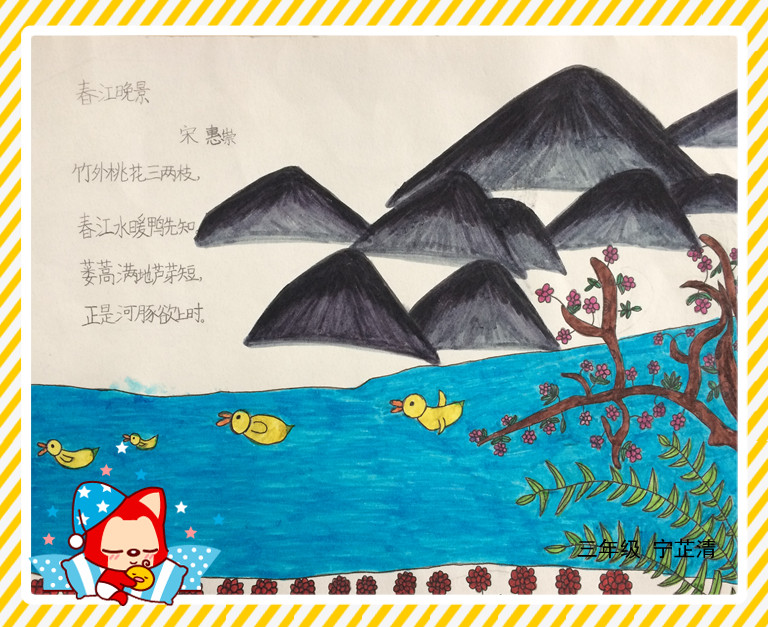 春江晚景
宋 惠崇
竹外桃花三两枝,
春江水暖鸭先知,
蒌蒿满地芦芽短,
正是河豚欲上时。
三年级 宁芷清